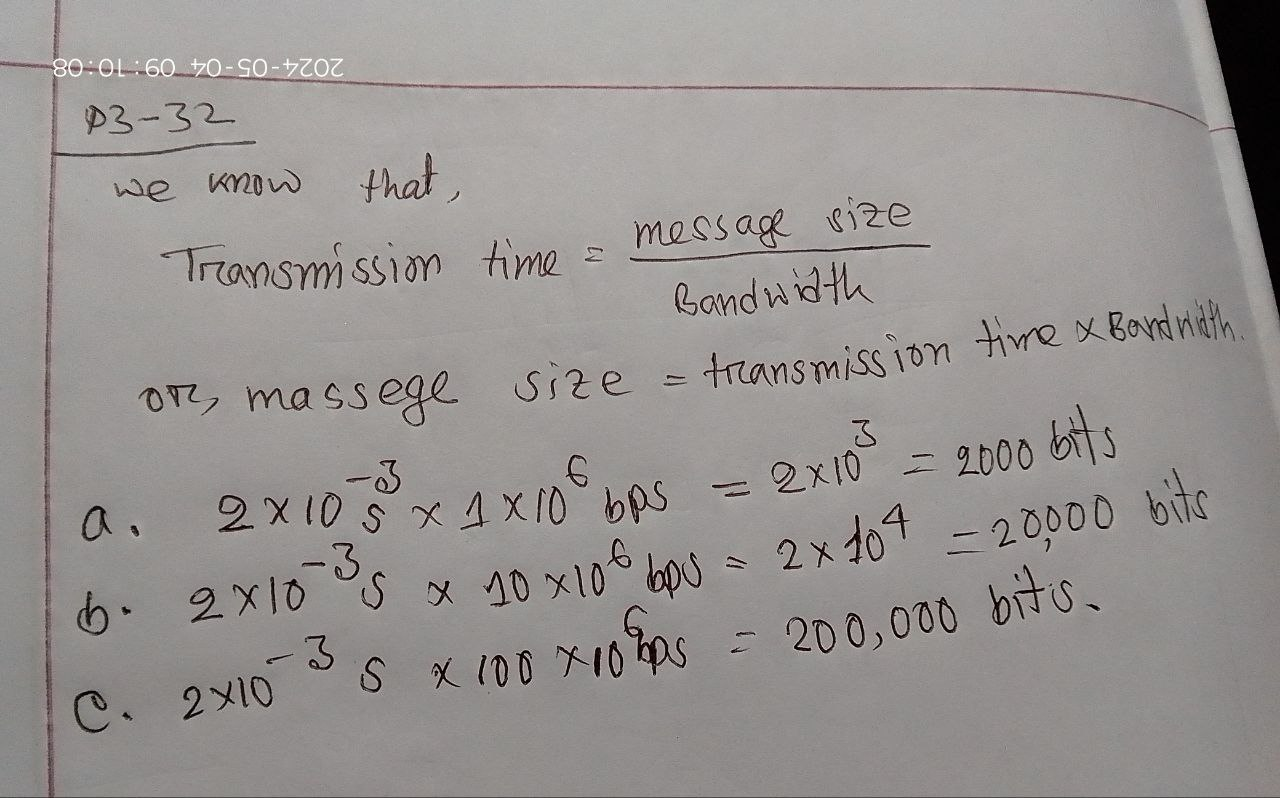 2024-05-04 09:10:08
P3-32
we know that,
Transmission time = message size / Bandwidth
or, massege size = transmission time × Bandwidth.
a. 2×10⁻³ s × 1×10⁶ bps = 2×10³ = 2000 bits
b. 2×10⁻³ s × 10×10⁶ bps = 2×10⁴ = 20,000 bits
c. 2×10⁻³ s × 100×10⁶ bps = 200,000 bits.